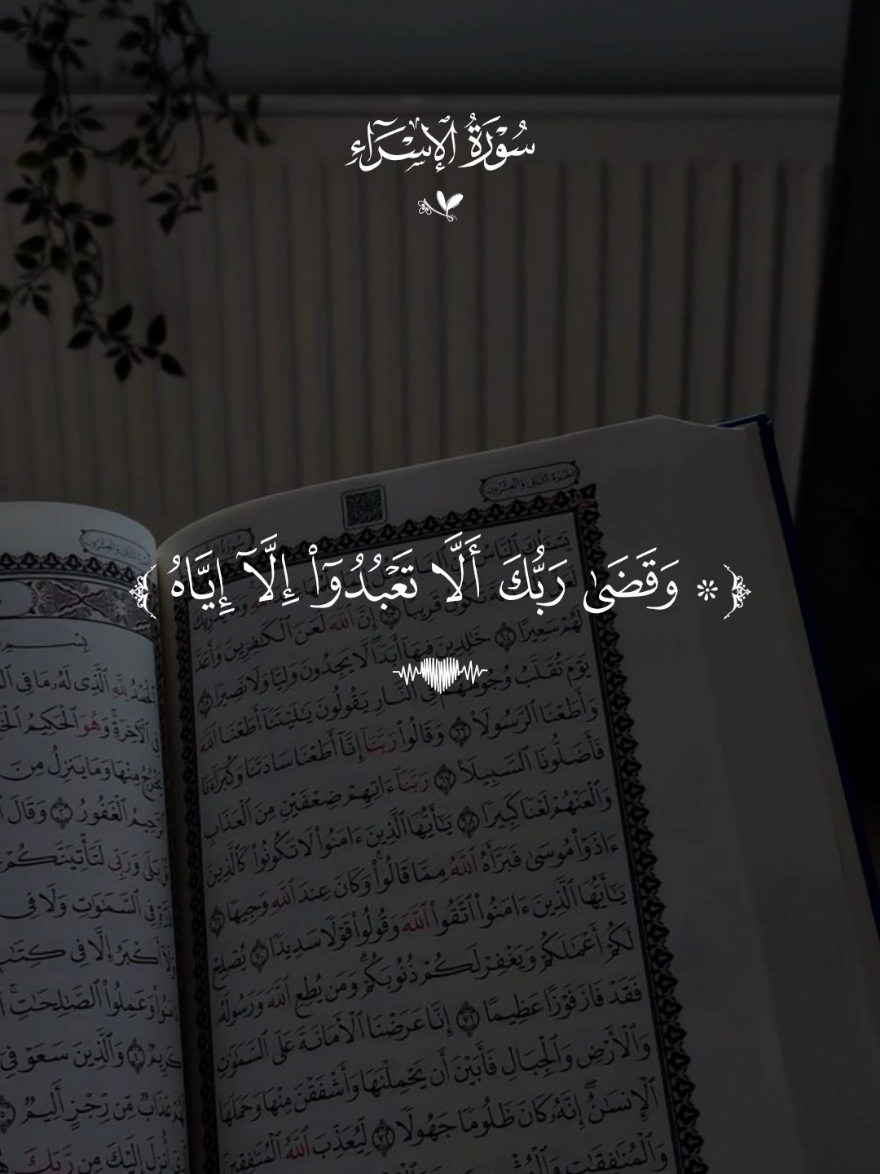 سُورَةُ ٱلْإِسْرَاءِ
﴿۞ وَقَضَىٰ رَبُّكَ أَلَّا تَعْبُدُوٓا۟ إِلَّآ إِيَّاهُ﴾
الجزء الثاني والعشرون
إِنَّ ٱللَّهَ لَعَنَ ٱلْكَٰفِرِينَ وَأَعَدَّ
لَهُمْ سَعِيرًا ٦٤ خَٰلِدِينَ فِيهَآ أَبَدًا لَّا يَجِدُونَ وَلِيًّا وَلَا نَصِيرًا ٦٥
يَوْمَ تُقَلَّبُ وُجُوهُهُمْ فِى ٱلنَّارِ يَقُولُونَ يَٰلَيْتَنَآ أَطَعْنَا ٱللَّهَ
وَأَطَعْنَا ٱلرَّسُولَا۠ ٦٦ وَقَالُوا۟ رَبَّنَآ إِنَّآ أَطَعْنَا سَادَتَنَا وَكُبَرَآءَنَا
فَأَضَلُّونَا ٱلسَّبِيلَا۠ ٦٧ رَبَّنَآ ءَاتِهِمْ ضِعْفَيْنِ مِنَ ٱلْعَذَابِ
وَٱلْعَنْهُمْ لَعْنًا كَبِيرًا ٦٨ يَٰٓأَيُّهَا ٱلَّذِينَ ءَامَنُوا۟ لَا تَكُونُوا۟ كَٱلَّذِينَ
ءَاذَوْا۟ مُوسَىٰ فَبَرَّأَهُ ٱللَّهُ مِمَّا قَالُوا۟ وَكَانَ عِندَ ٱللَّهِ وَجِيهًا ٦٩
يَٰٓأَيُّهَا ٱلَّذِينَ ءَامَنُوا۟ ٱتَّقُوا۟ ٱللَّهَ وَقُولُوا۟ قَوْلًا سَدِيدًا ٧٠ يُصْلِحْ
لَكُمْ أَعْمَٰلَكُمْ وَيَغْفِرْ لَكُمْ ذُنُوبَكُمْ وَمَن يُطِعِ ٱللَّهَ وَرَسُولَهُۥ
فَقَدْ فَازَ فَوْزًا عَظِيمًا ٧١ إِنَّا عَرَضْنَا ٱلْأَمَانَةَ عَلَى ٱلسَّمَٰوَٰتِ
وَٱلْأَرْضِ وَٱلْجِبَالِ فَأَبَيْنَ أَن يَحْمِلْنَهَا وَأَشْفَقْنَ مِنْهَا وَحَمَلَهَا
ٱلْإِنسَٰنُ إِنَّهُۥ كَانَ ظَلُومًا جَهُولًا ٧٢ لِّيُعَذِّبَ ٱللَّهُ ٱلْمُنَٰفِقِينَ
وَٱلْمُنَٰفِقَٰتِ
ٱلَّذِى لَهُۥ مَا فِى
ٱلْءَاخِرَةِ وَهُوَ ٱلْحَكِيمُ
مِنْهَا وَمَا يَنزِلُ مِنَ
ٱلرَّحِيمُ ٱلْغَفُورُ ٢ وَقَالَ
بَلَىٰ وَرَبِّى لَتَأْتِيَنَّكُمْ
فِى ٱلسَّمَٰوَٰتِ وَلَا فِى
أَكْبَرُ إِلَّا فِى
وَعَمِلُوا۟ ٱلصَّٰلِحَٰتِ
كَرِيمٌ ٤ وَٱلَّذِينَ سَعَوْ فِىٓ
عَذَابٌ مِّن رِّجْزٍ أَلِيمٌ ٥
أُنزِلَ إِلَيْكَ مِن رَّبِّكَ